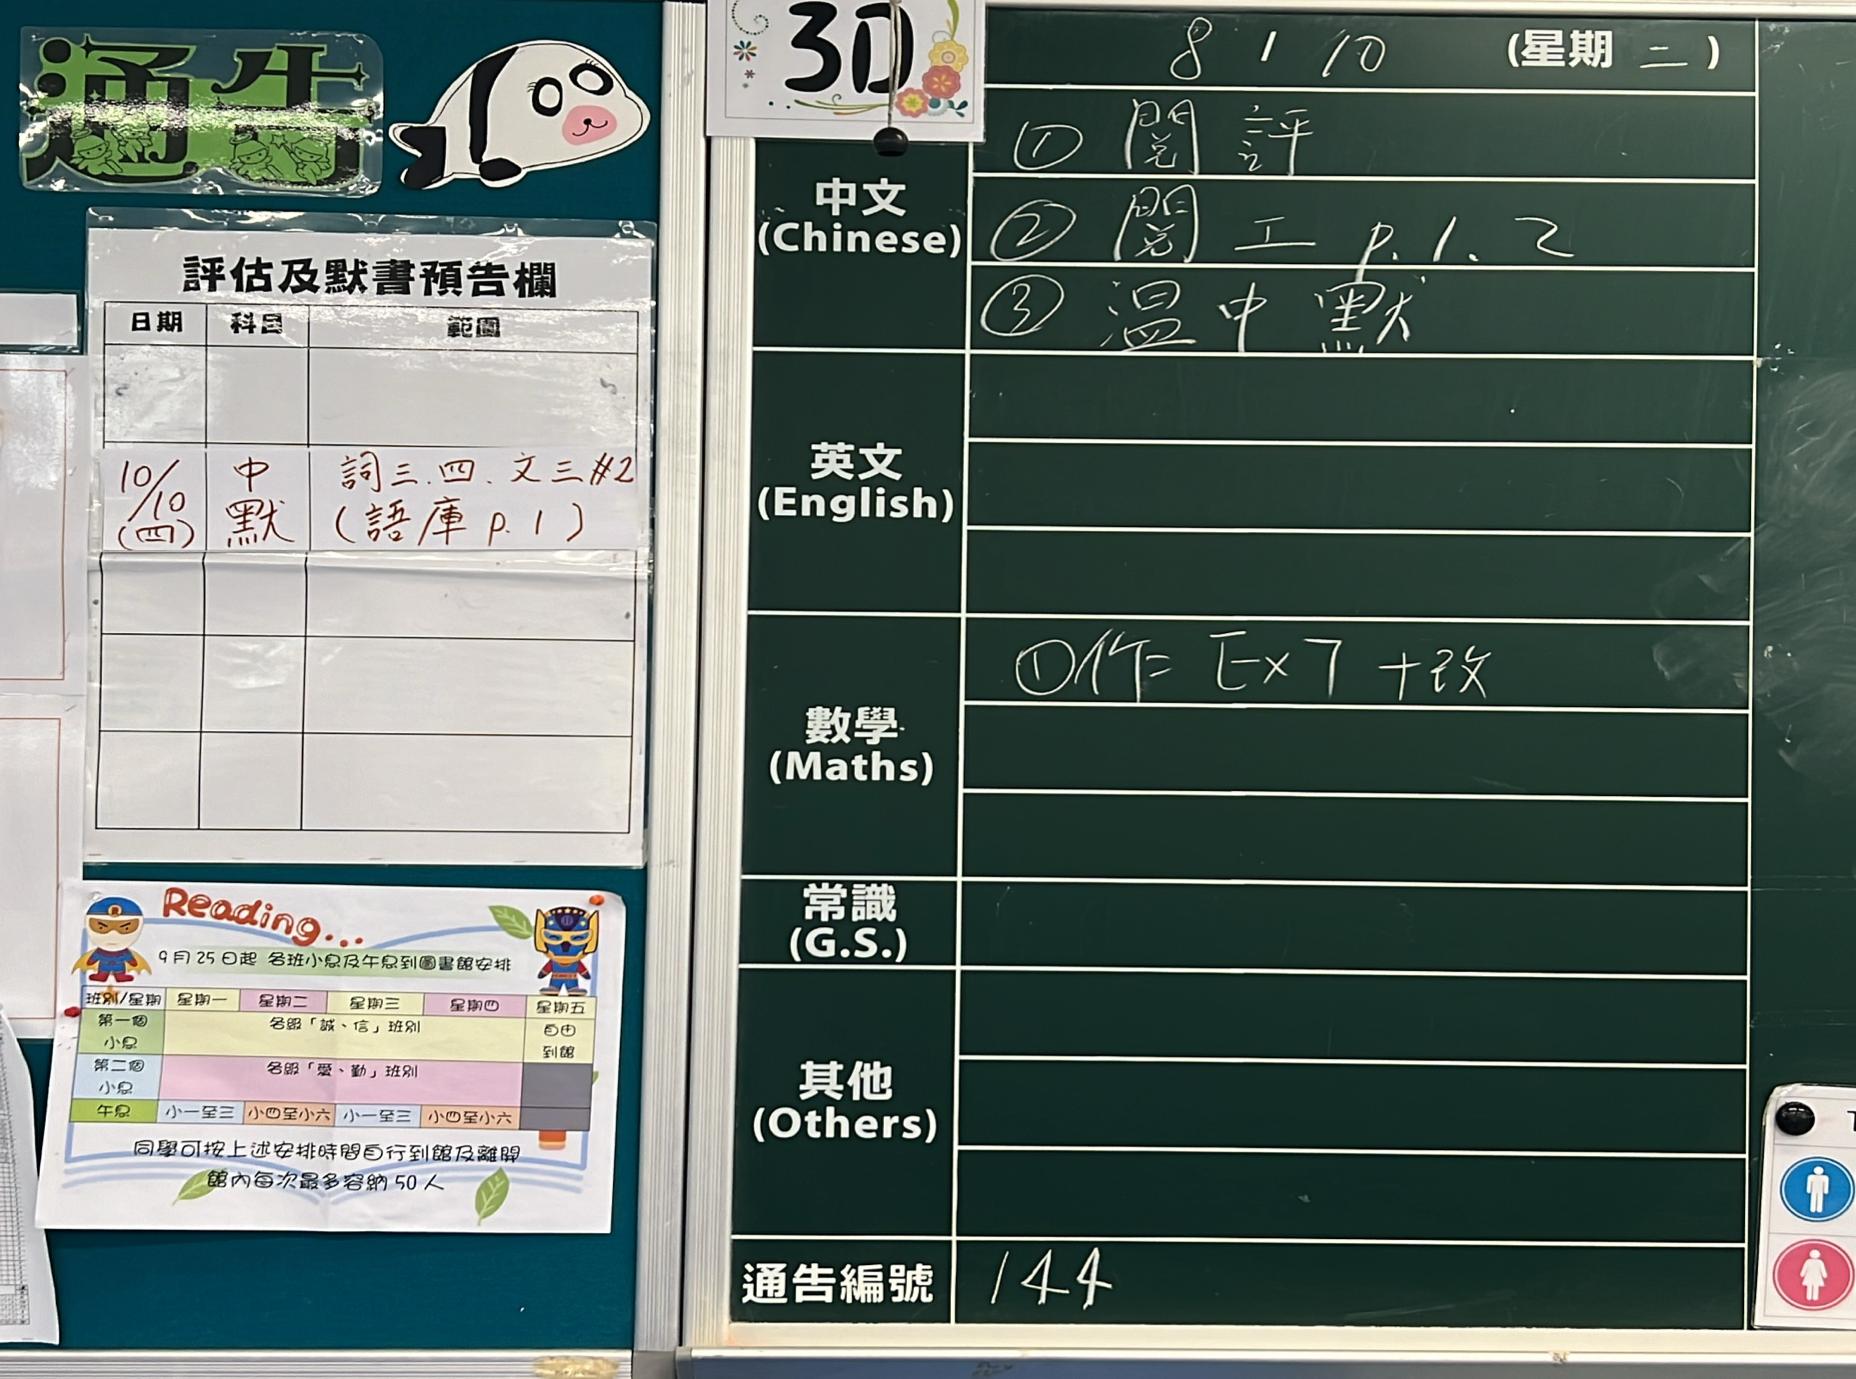 通告
評估及默書預告欄
日期 科目 範圍
10/10 (四) 中默 詞三.四.文三#2
(語庫 p.1)
Reading...
9月25日起 各班小息及午息到圖書館安排
班別/星期 星期一 星期二 星期三 星期四 星期五
第一個小息 各級「誠、信」班別 自由到館
第二個小息 各級「愛、勤」班別
午息 小一至三 小四至小六 小一至三 小四至小六
同學可按上述安排時間自行到館及離開
館內每次最多容納50人
3D
8 / 10 (星期 二)
中文
(Chinese)
① 閱 評
② 閱 工 p.1.2
③ 溫 中 默
英文
(English)
數學
(Maths)
①作= Ex7 +改
常識
(G.S.)
其他
(Others)
通告編號 144